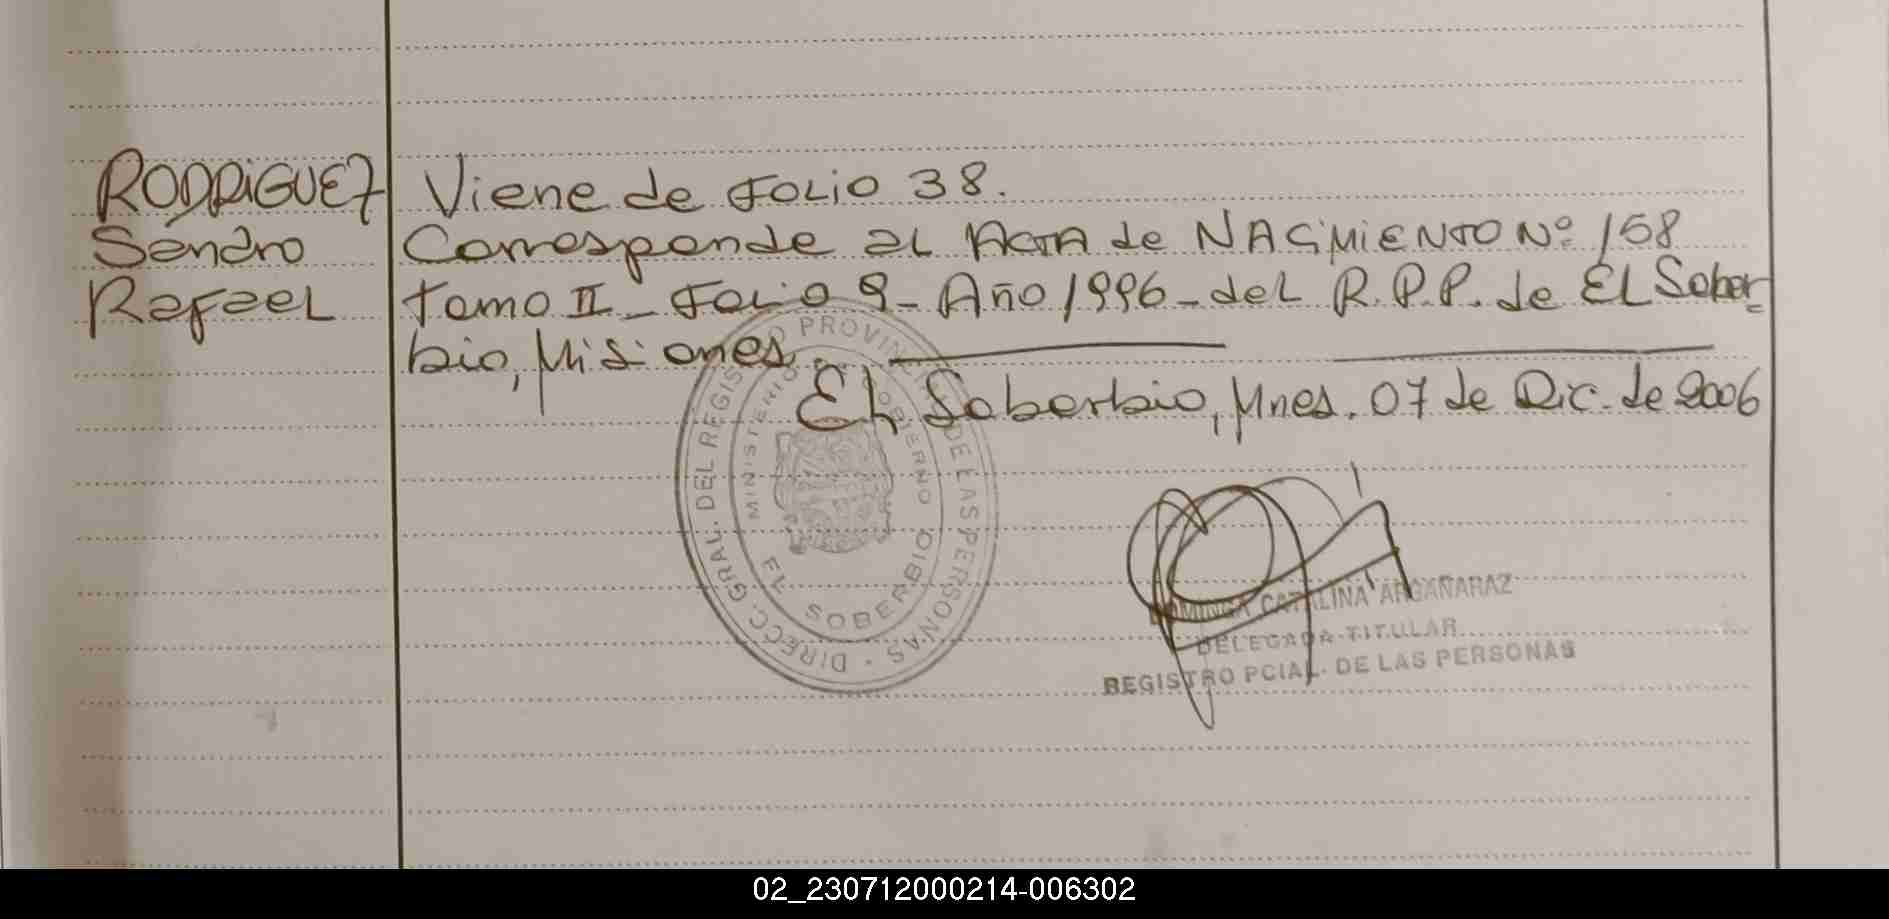 RODRIGUEZ Viene de FOLIO 38.
Sandro Corresponde al ACTA de NACiMiENTO Nº 158
Rafael tomo II - Folio 9 - Año 1996 - del R.P.P. de El Sober
bio, Misiones.
El Soberbio, Mnes. 07 de Dic. de 2006
DIRECC. GRAL. DEL REGISTRO PROVINCIAL DE LAS PERSONAS
MINISTERIO DE GOBIERNO
EL SOBERBIO
DOMINGA CATALINA ARGAÑARAZ
DELEGADA TITULAR
REGISTRO PCIAL. DE LAS PERSONAS
02_230712000214-006302